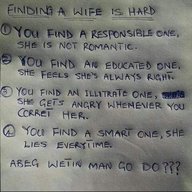 FINDING A WIFE IS HARD
① YOU FIND A RESPONSIBLE ONE,
SHE IS NOT ROMANTIC.
② YOU FIND AN EDUCATED ONE,
SHE FEELS SHE'S ALWAYS RIGHT.
③ YOU FIND AN ILLITRATE ONE,
SHE GETS ANGRY WHENEMER YOU
CORRET HER.
④ YOU FIND A SMART ONE, SHE
LIES EVERYTIME.
ABEG WETIN MAN GO DO???